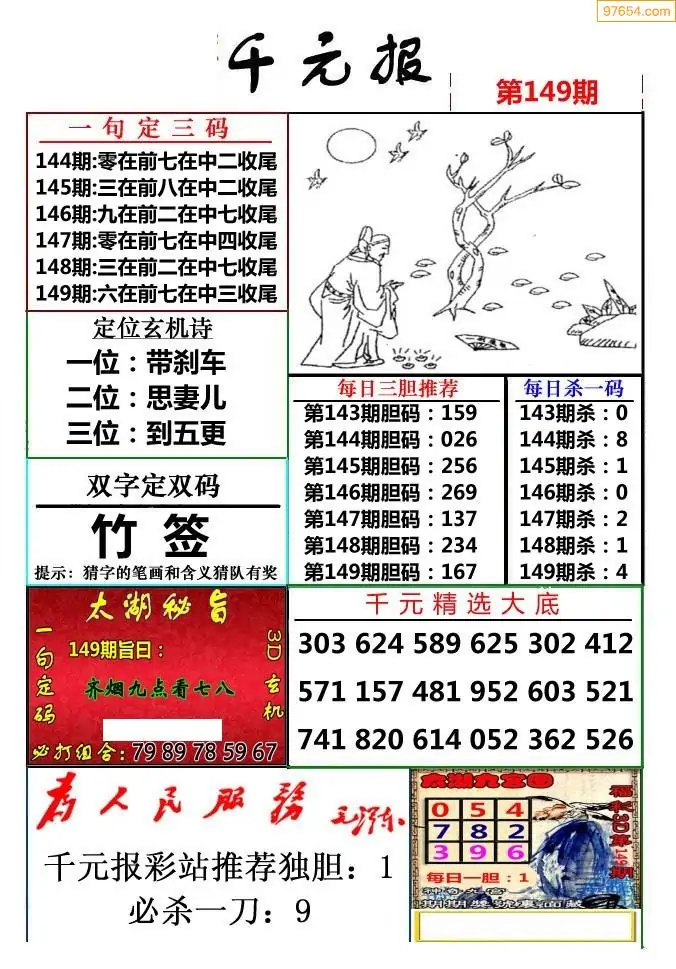 97654.com
千元报
第149期
一句定三码
144期:零在前七在中二收尾
145期:三在前八在中二收尾
146期:九在前二在中七收尾
147期:零在前七在中四收尾
148期:三在前二在中七收尾
149期:六在前七在中三收尾
定位玄机诗
一位：带刹车
二位：思妻儿
三位：到五更
双字定双码
竹签
提示：猜字的笔画和含义猜队有奖
每日三胆推荐
第143期胆码：159
第144期胆码：026
第145期胆码：256
第146期胆码：269
第147期胆码：137
第148期胆码：234
第149期胆码：167
每日杀一码
143期杀：0
144期杀：8
145期杀：1
146期杀：0
147期杀：2
148期杀：1
149期杀：4
太湖秘旨
一句定码
149期旨曰：
齐烟九点看七八
3D玄机
必打组合：79 89 78 59 67
千元精选大底
303 624 589 625 302 412
571 157 481 952 603 521
741 820 614 052 362 526
为人民服务
毛泽东
千元报彩站推荐独胆：1
必杀一刀：9
太湖九宫图
0 5 4
7 8 2
3 9 6
每日一胆：1
福彩3D第149期
期期獎號裏面藏